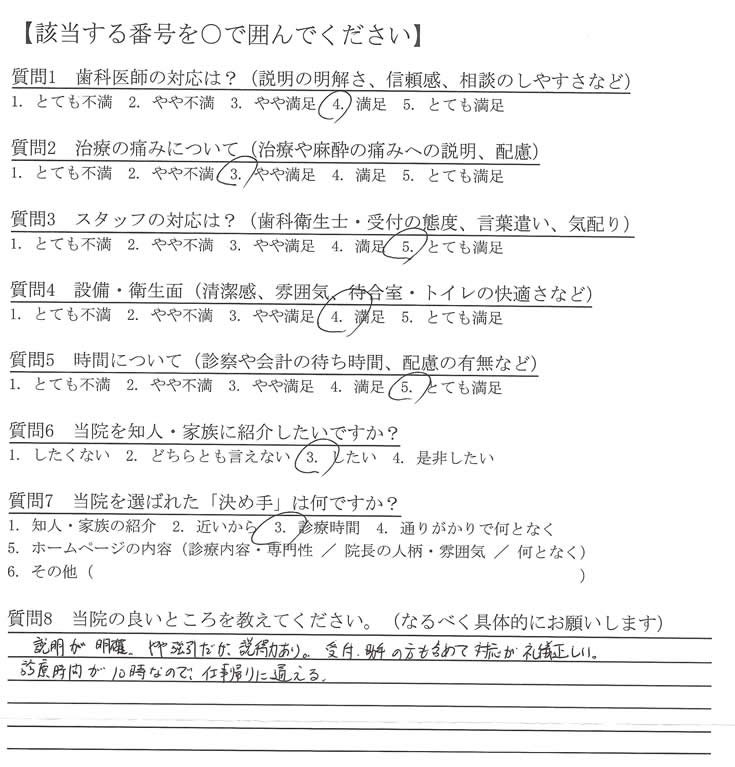 【該当する番号を○で囲んでください】
質問1 歯科医師の対応は？（説明の明解さ、信頼感、相談のしやすさなど）
1. とても不満 2. やや不満 3. やや満足 4. 満足 5. とても満足
質問2 治療の痛みについて（治療や麻酔の痛みへの説明、配慮）
1. とても不満 2. やや不満 3. やや満足 4. 満足 5. とても満足
質問3 スタッフの対応は？（歯科衛生士・受付の態度、言葉遣い、気配り）
1. とても不満 2. やや不満 3. やや満足 4. 満足 5. とても満足
質問4 設備・衛生面（清潔感、雰囲気、待合室・トイレの快適さなど）
1. とても不満 2. やや不満 3. やや満足 4. 満足 5. とても満足
質問5 時間について（診察や会計の待ち時間、配慮の有無など）
1. とても不満 2. やや不満 3. やや満足 4. 満足 5. とても満足
質問6 当院を知人・家族に紹介したいですか？
1. したくない 2. どちらとも言えない 3. したい 4. 是非したい
質問7 当院を選ばれた「決め手」は何ですか？
1. 知人・家族の紹介 2. 近いから 3. 診療時間 4. 通りがかりで何となく
5. ホームページの内容（診療内容・専門性 ／ 院長の人柄・雰囲気 ／ 何となく）
6. その他（ ）
質問8 当院の良いところを教えてください。（なるべく具体的にお願いします）
説明が明確。やや強引だが、説得力あり。受付、助手の方も含めて対応が礼儀正しい。
診療時間が10時なので、仕事帰りに通える。